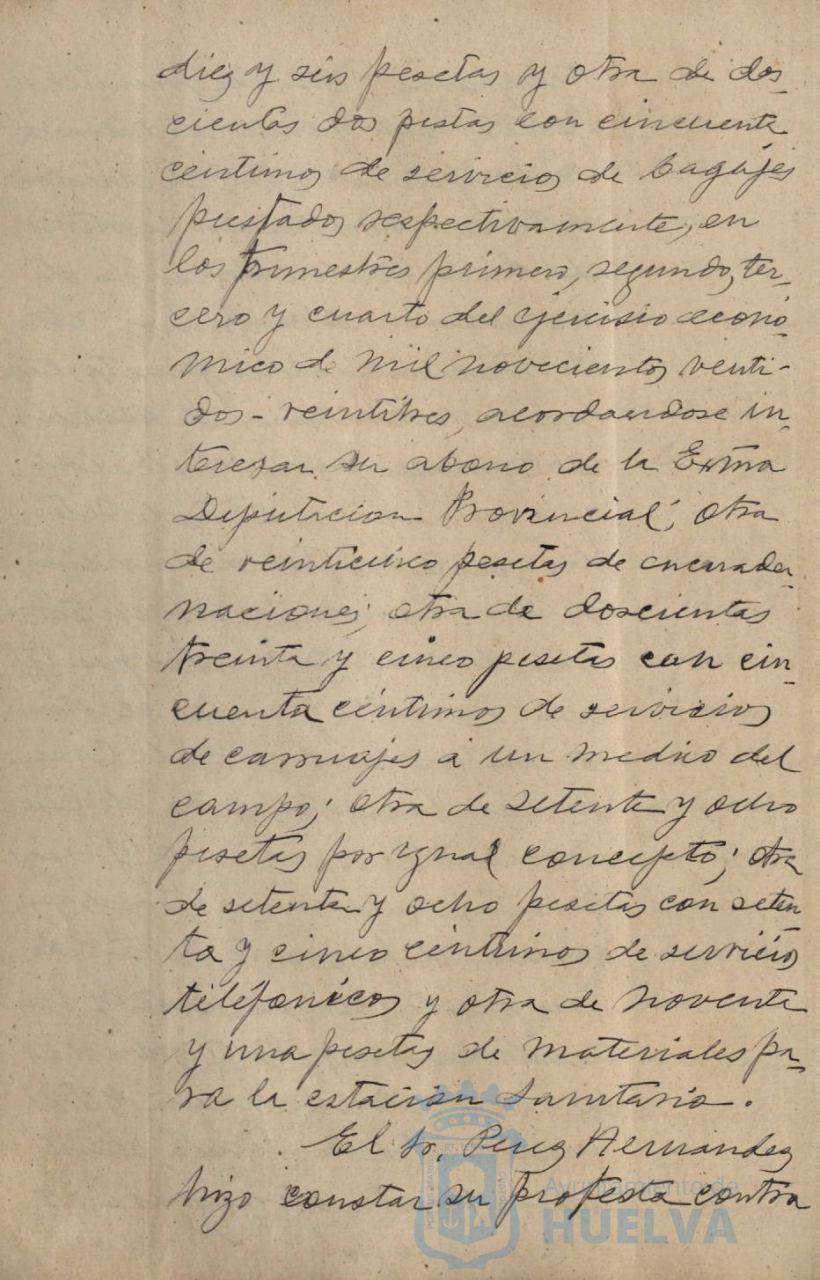 diez y seis pesetas y otra de dos-
cientas dos pestas con cincuenta
centimos de servicios de bagajes
prestados respectivamente, en
los trimestres primero, segundo, ter-
cero y cuarto del ejercisio econó-
mico de mil novecientos venti-
dos-veintitres, acordandose in-
terezar su abono de la Exma
Diputacion Provincial; otra
de veinticinco pesetas de encuader-
naciones; otra de doscientas
treinta y cinco pesetas con cin-
cuenta céntimos de servicios
de carruajes a un medico del
campo; otra de setenta y ocho
pesetas por igual concepto; otra
de setenta y ocho pesetas con seten
ta y cinco centimos de servicios
telefonicos y otra de noventa
y una pesetas de materiales pa-
ra la estacion Sanitaria.
El Sr. Perez Hernandez
hizo constar su protesta contra
Ayuntamiento de
HUELVA